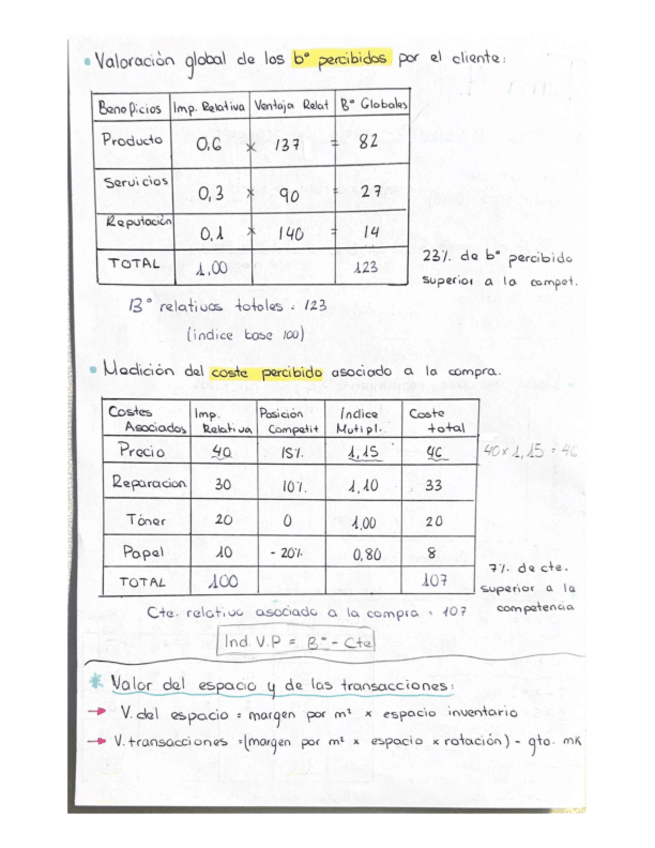 • Valoración global de los bº percibidos por el cliente:
Beneficios Imp. Relativa Ventaja Relat Bº Globales
Producto 0,6 x 137 = 82
Servicios 0,3 x 90 = 27
Reputación 0,1 x 140 = 14
TOTAL 1,00 123
23% de bº percibido
superior a la compet.
Bº relativos totales = 123
(índice base 100)
• Medición del coste percibido asociado a la compra.
Costes Asociados Imp. Relativa Posición Competit Índice Mutipl. Coste total
Precio 40 15% 1,15 46 40 x 1,15 = 46
Reparacion 30 10% 1,10 33
Tóner 20 0 1,00 20
Papel 10 - 20% 0,80 8
TOTAL 100 107
7% de cte.
superior a la
competencia
Cte. relativo asociado a la compra = 107
Ind. V.P = Bº - Cte
* Valor del espacio y de las transacciones:
→ V. del espacio = margen por m² x espacio inventario
→ V. transacciones = (margen por m² x espacio x rotación) - gto. mk